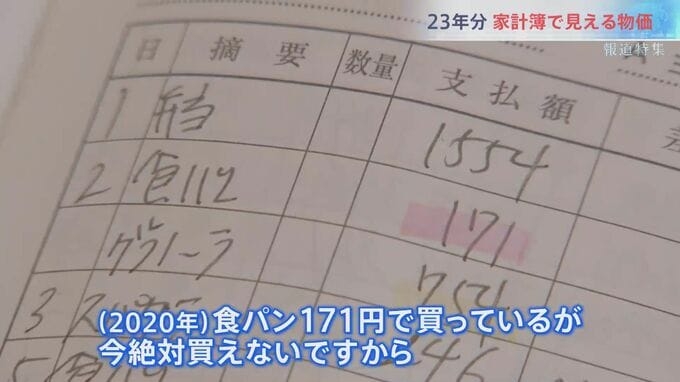 23年分 家計簿で見える物価
報道特集
日 摘要 数量 支払額 差
1 弁当 1554
2 食パン 171
グラノーラ 754
3
5 食パン 146
(2020年)食パン171円で買っているが
今絶対買えないですから